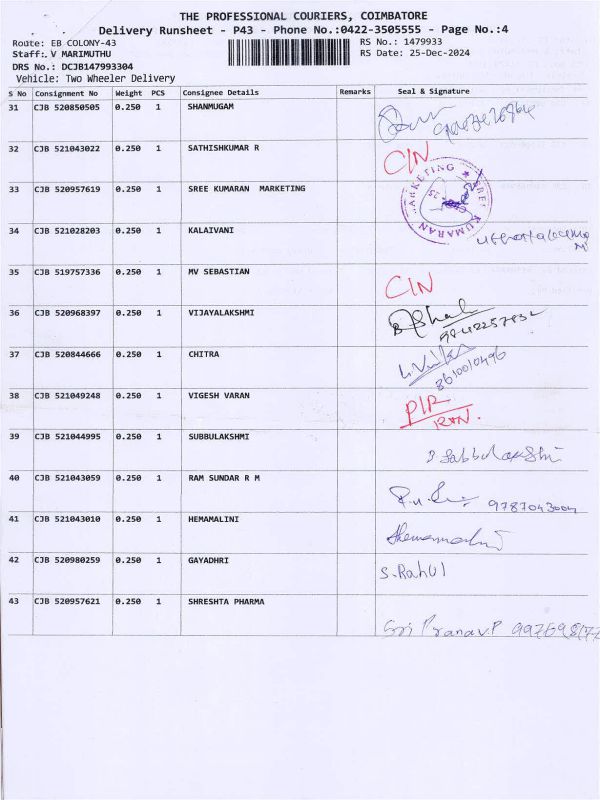 THE PROFESSIONAL COURIERS, COIMBATORE
Delivery Runsheet - P43 - Phone No.:0422-3505555 - Page No.:4
Route: EB COLONY-43 RS No.: 1479933
Staff: V MARIMUTHU RS Date: 25-Dec-2024
DRS No.: DCJB147993304
Vehicle: Two Wheeler Delivery
S No Consignment No Weight PCS Consignee Details Remarks Seal & Signature
31 CJB 520850505 0.250 1 SHANMUGAM
32 CJB 521043022 0.250 1 SATHISHKUMAR R CIN
33 CJB 520957619 0.250 1 SREE KUMARAN MARKETING SREE KUMARAN MARKETING
34 CJB 521028203 0.250 1 KALAIVANI
35 CJB 519757336 0.250 1 MV SEBASTIAN CIN
36 CJB 520968397 0.250 1 VIJAYALAKSHMI
37 CJB 520844666 0.250 1 CHITRA 8610010496
38 CJB 521049248 0.250 1 VIGESH VARAN P/R
39 CJB 521044995 0.250 1 SUBBULAKSHMI
40 CJB 521043059 0.250 1 RAM SUNDAR R M 9787043004
41 CJB 521043010 0.250 1 HEMAMALINI
42 CJB 520980259 0.250 1 GAYADHRI S.Rahul
43 CJB 520957621 0.250 1 SHRESHTA PHARMA Sri Pranav.P